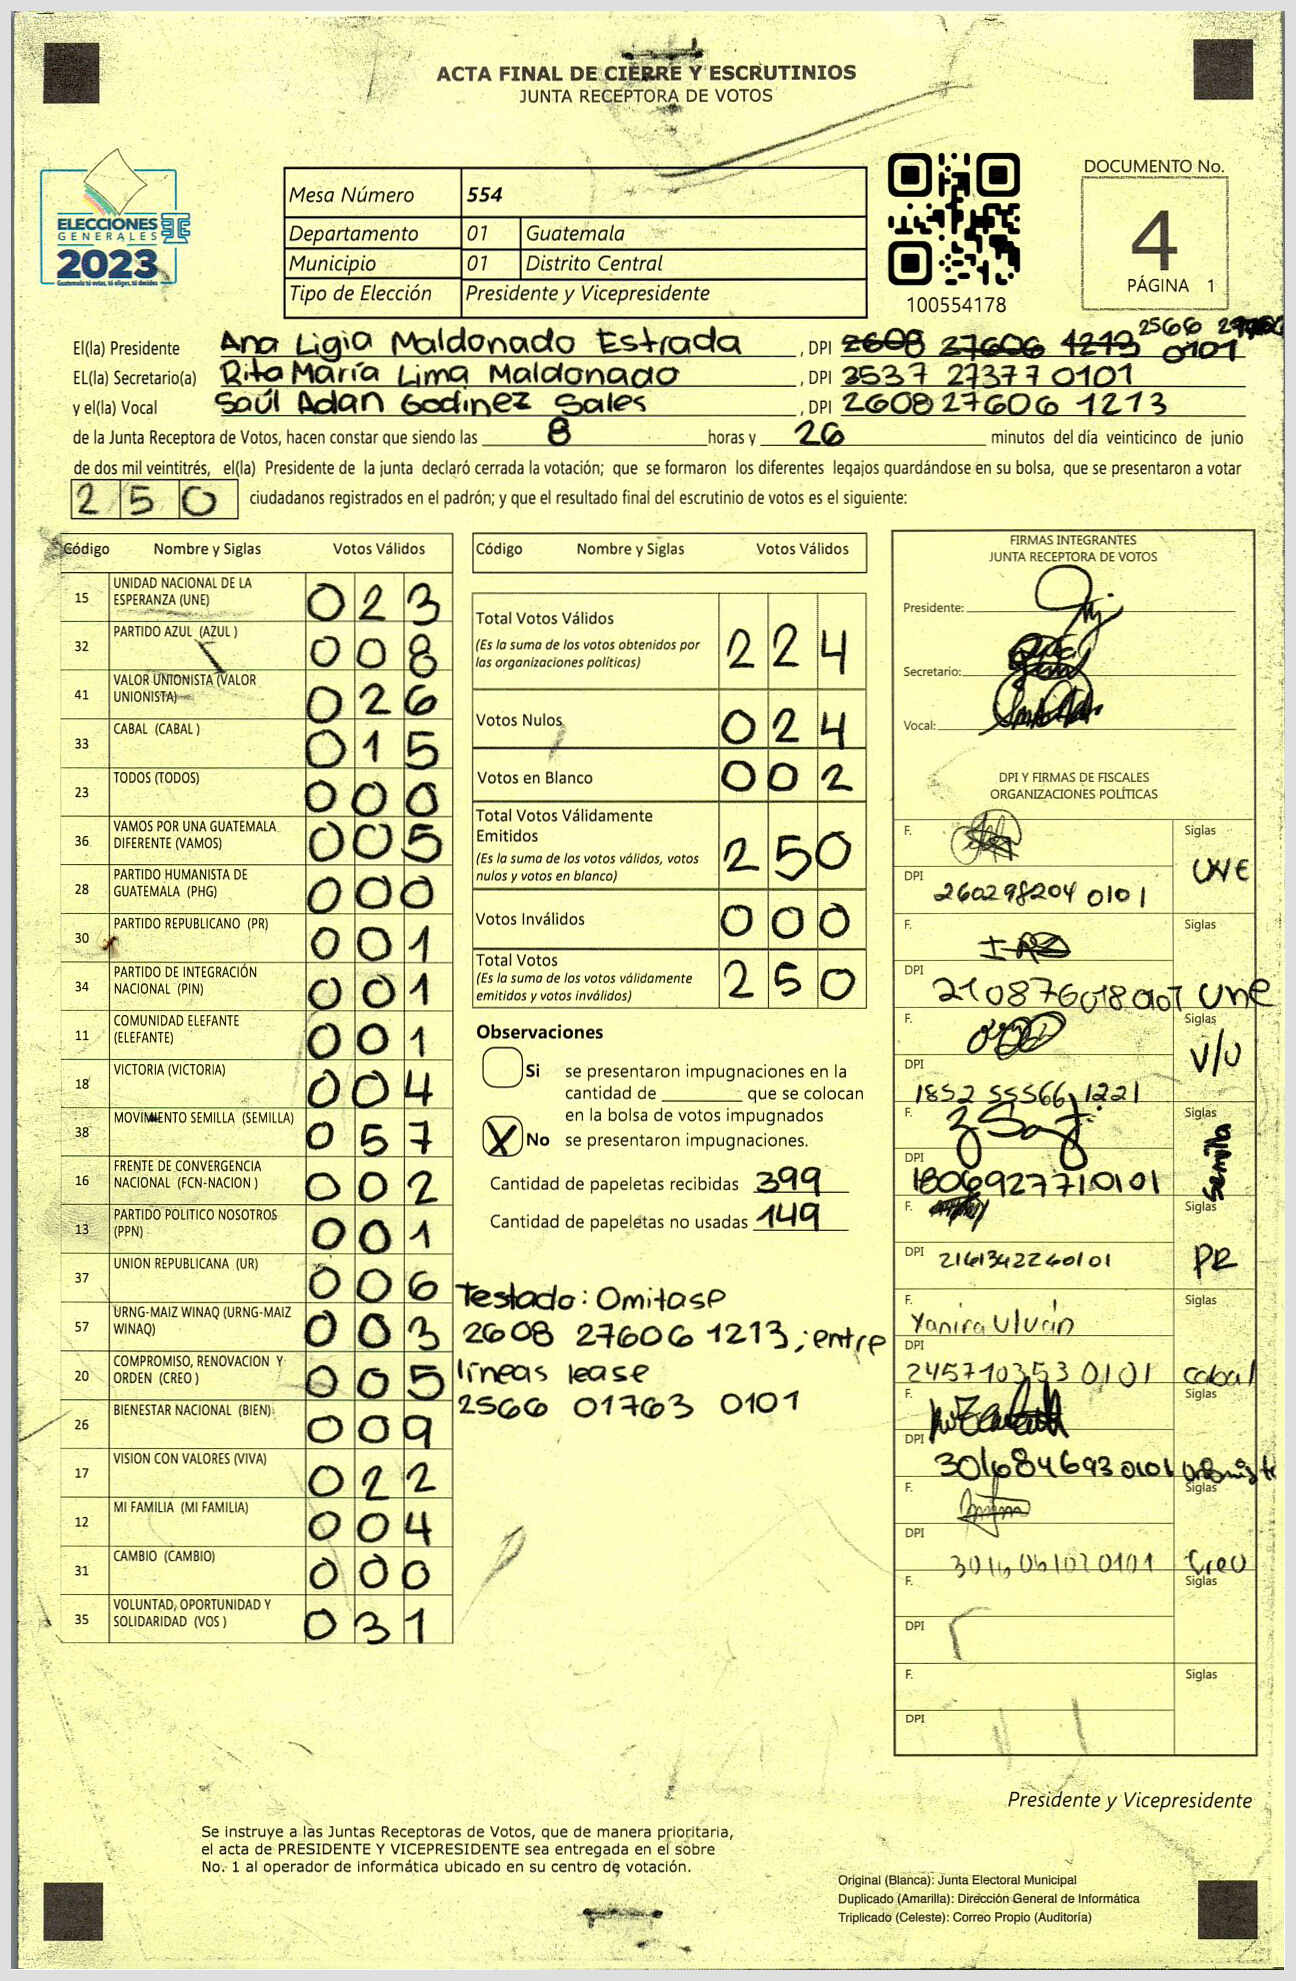 ACTA FINAL DE CIERRE Y ESCRUTINIOS
JUNTA RECEPTORA DE VOTOS
ELECCIONES
GENERALES
2023
Guatemala tú votas, tú eliges, tú decides
Mesa Número 554
Departamento 01 Guatemala
Municipio 01 Distrito Central
Tipo de Elección Presidente y Vicepresidente
100554178
DOCUMENTO No.
4
PÁGINA 1
El(la) Presidente Ana Ligia Maldonado Estrada, DPI 2608 27606 1213 2566 0101
EL(la) Secretario(a) Rita María Lima Maldonado, DPI 3537 27377 0101
y el(la) Vocal Saúl Adan Godinez Sales, DPI 2608 27606 1213
de la Junta Receptora de Votos, hacen constar que siendo las 8 horas y 26 minutos del día veinticinco de junio
de dos mil veintitrés, el(la) Presidente de la junta declaró cerrada la votación; que se formaron los diferentes legajos guardándose en su bolsa, que se presentaron a votar
250 ciudadanos registrados en el padrón; y que el resultado final del escrutinio de votos es el siguiente:
Código Nombre y Siglas Votos Válidos
15 UNIDAD NACIONAL DE LA ESPERANZA (UNE) 023
32 PARTIDO AZUL (AZUL ) 008
41 VALOR UNIONISTA (VALOR UNIONISTA) 026
33 CABAL (CABAL ) 015
23 TODOS (TODOS) 000
36 VAMOS POR UNA GUATEMALA DIFERENTE (VAMOS) 005
28 PARTIDO HUMANISTA DE GUATEMALA (PHG) 000
30 PARTIDO REPUBLICANO (PR) 001
34 PARTIDO DE INTEGRACIÓN NACIONAL (PIN) 001
11 COMUNIDAD ELEFANTE (ELEFANTE) 001
18 VICTORIA (VICTORIA) 004
38 MOVIMIENTO SEMILLA (SEMILLA) 057
16 FRENTE DE CONVERGENCIA NACIONAL (FCN-NACION ) 002
13 PARTIDO POLITICO NOSOTROS (PPN) 001
37 UNION REPUBLICANA (UR) 006
57 URNG-MAIZ WINAQ (URNG-MAIZ WINAQ) 003
20 COMPROMISO, RENOVACION Y ORDEN (CREO ) 005
26 BIENESTAR NACIONAL (BIEN) 009
17 VISION CON VALORES (VIVA) 022
12 MI FAMILIA (MI FAMILIA) 004
31 CAMBIO (CAMBIO) 000
35 VOLUNTAD, OPORTUNIDAD Y SOLIDARIDAD (VOS ) 031
Código Nombre y Siglas Votos Válidos
Total Votos Válidos 224
(Es la suma de los votos obtenidos por
las organizaciones políticas)
Votos Nulos 024
Votos en Blanco 002
Total Votos Válidamente
Emitidos 250
(Es la suma de los votos válidos, votos
nulos y votos en blanco)
Votos Inválidos 000
Total Votos 250
(Es la suma de los votos válidamente
emitidos y votos inválidos)
Observaciones
Si se presentaron impugnaciones en la
cantidad de ________ que se colocan
en la bolsa de votos impugnados
X No se presentaron impugnaciones.
Cantidad de papeletas recibidas 399
Cantidad de papeletas no usadas 149
Testado: Omitase
2608 27606 1213; entre
líneas lease
2566 01763 0101
FIRMAS INTEGRANTES
JUNTA RECEPTORA DE VOTOS
Presidente:
Secretario:
Vocal:
DPI Y FIRMAS DE FISCALES
ORGANIZACIONES POLÍTICAS
F. Siglas UNE
DPI 260298204 0101
F. Siglas une
DPI
F. Siglas V/U
DPI 1852 55566 1221
F. Siglas Semilla
DPI 1806927710101
F. Siglas PR
DPI 2161342240101
F. Yanira Ulván Siglas cabal
DPI 245710353 0101
F. Siglas
DPI 301684693 0101
F. Siglas Creo
DPI
F. Siglas
DPI
F. Siglas
DPI
Presidente y Vicepresidente
Se instruye a las Juntas Receptoras de Votos, que de manera prioritaria,
el acta de PRESIDENTE Y VICEPRESIDENTE sea entregada en el sobre
No. 1 al operador de informática ubicado en su centro de votación.
Original (Blanca): Junta Electoral Municipal
Duplicado (Amarilla): Dirección General de Informática
Triplicado (Celeste): Correo Propio (Auditoría)